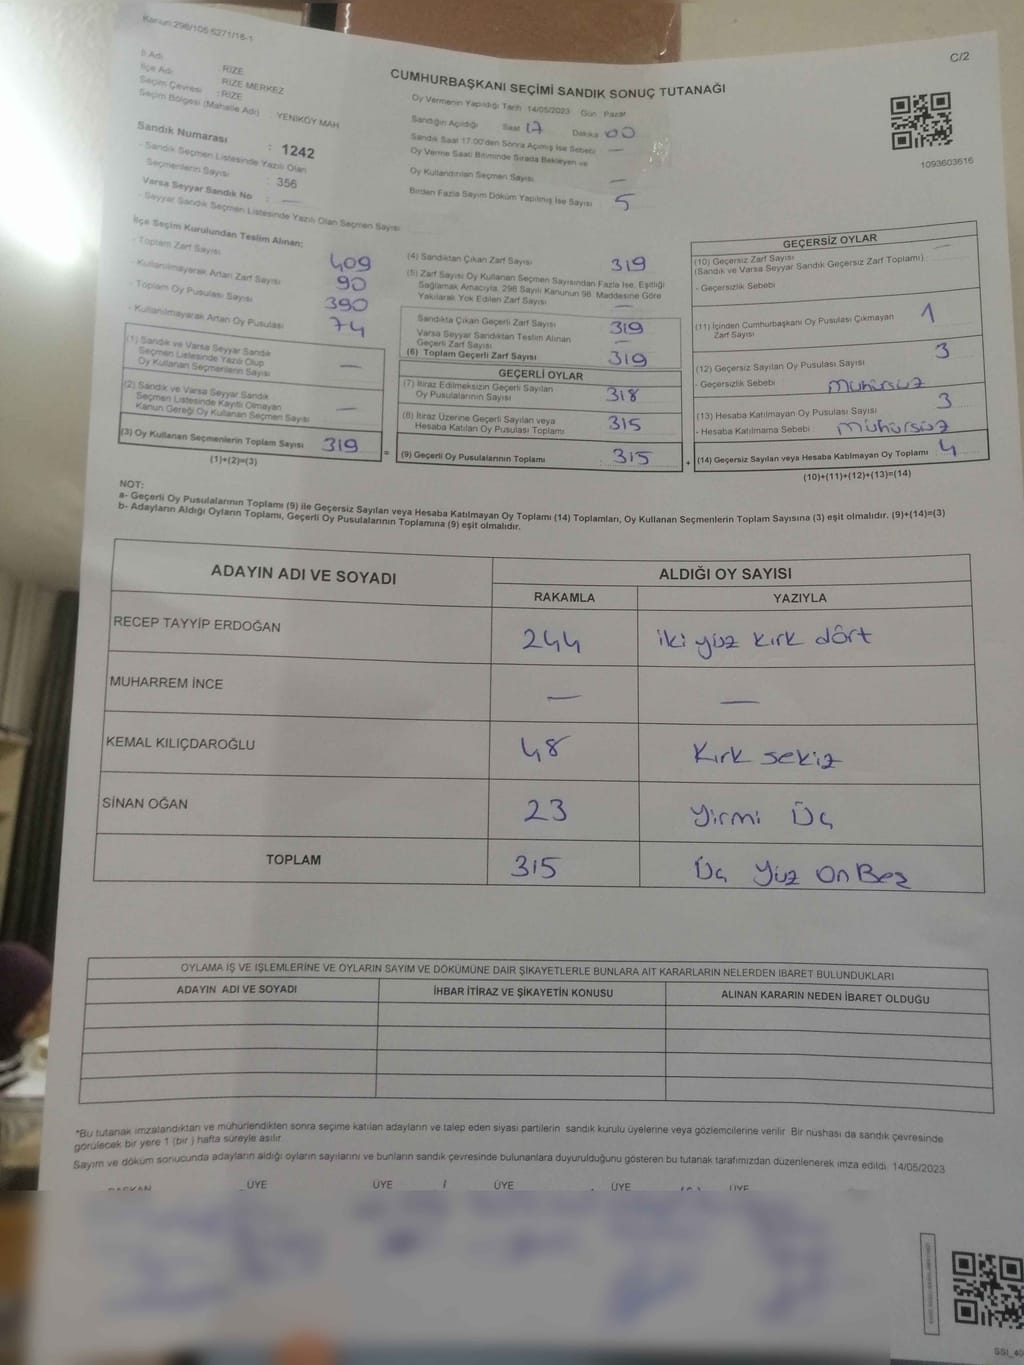 Kanun:298/105 6271/18-1
C/2
İl Adı : RİZE
İlçe Adı : RİZE MERKEZ
Seçim Çevresi : RİZE
Seçim Bölgesi (Mahalle Adı) : YENİKÖY MAH
Sandık Numarası : 1242
- Sandık Seçmen Listesinde Yazılı Olan
Seçmenlerin Sayısı : 356
Varsa Seyyar Sandık No : —
- Seyyar Sandık Seçmen Listesinde Yazılı Olan Seçmen Sayısı
CUMHURBAŞKANI SEÇİMİ SANDIK SONUÇ TUTANAĞI
Oy Vermenin Yapıldığı Tarih 14/05/2023 Gün Pazar
Sandığın Açıldığı Saat 17 Dakika 00
Sandık Saat 17:00'den Sonra Açımış İse Sebebi —
Oy Verme Saati Bitiminde Sırada Bekleyen ve
Oy Kullandırılan Seçmen Sayısı —
Birden Fazla Sayım Döküm Yapılmış İse Sayısı 5
1093603616
İlçe Seçim Kurulundan Teslim Alınan;
- Toplam Zarf Sayısı 409
- Kullanılmayarak Artan Zarf Sayısı 90
- Toplam Oy Pusulası Sayısı 390
- Kullanılmayarak Artan Oy Pusulası 74
(1) Sandık ve Varsa Seyyar Sandık
Seçmen Listesinde Yazılı Olup
Oy Kullanan Seçmenlerin Sayısı —
(2) Sandık ve Varsa Seyyar Sandık
Seçmen Listesinde Kayıtlı Olmayan
Kanun Gereği Oy Kullanan Seçmen Sayısı —
(3) Oy Kullanan Seçmenlerin Toplam Sayısı 319
(1)+(2)=(3)
=
(4) Sandıktan Çıkan Zarf Sayısı 319
(5) Zarf Sayısı Oy Kullanan Seçmen Sayısından Fazla İse, Eşitliği
Sağlamak Amacıyla, 298 Sayılı Kanunun 98. Maddesine Göre
Yakılarak Yok Edilen Zarf Sayısı —
Sandıkta Çıkan Geçerli Zarf Sayısı 319
Varsa Seyyar Sandıktan Teslim Alınan
Geçerli Zarf Sayısı —
(6) Toplam Geçerli Zarf Sayısı 319
GEÇERLİ OYLAR
(7) İtiraz Edilmeksizin Geçerli Sayılan
Oy Pusulalarının Sayısı 318
(8) İtiraz Üzerine Geçerli Sayılan veya
Hesaba Katılan Oy Pusulası Toplamı 315
(9) Geçerli Oy Pusulalarının Toplamı 315
+
GEÇERSİZ OYLAR
(10) Geçersiz Zarf Sayısı —
(Sandık ve Varsa Seyyar Sandık Geçersiz Zarf Toplamı)
- Geçersizlik Sebebi
(11) İçinden Cumhurbaşkanı Oy Pusulası Çıkmayan 1
Zarf Sayısı
(12) Geçersiz Sayılan Oy Pusulası Sayısı 3
- Geçersizlik Sebebi mühürsüz
(13) Hesaba Katılmayan Oy Pusulası Sayısı 3
- Hesaba Katılmama Sebebi mühürsüz
(14) Geçersiz Sayılan veya Hesaba Katılmayan Oy Toplamı 4
(10)+(11)+(12)+(13)=(14)
NOT:
a- Geçerli Oy Pusulalarının Toplamı (9) ile Geçersiz Sayılan veya Hesaba Katılmayan Oy Toplamı (14) Toplamları, Oy Kullanan Seçmenlerin Toplam Sayısına (3) eşit olmalıdır. (9)+(14)=(3)
b- Adayların Aldığı Oyların Toplamı, Geçerli Oy Pusulalarının Toplamına (9) eşit olmalıdır.
ADAYIN ADI VE SOYADI ALDIĞI OY SAYISI
RAKAMLA YAZIYLA
RECEP TAYYİP ERDOĞAN 244 iki yüz kırk dört
MUHARREM İNCE — —
KEMAL KILIÇDAROĞLU 48 Kırk sekiz
SİNAN OĞAN 23 Yirmi Üç
TOPLAM 315 Üç Yüz On Beş
OYLAMA İŞ VE İŞLEMLERİNE VE OYLARIN SAYIM VE DÖKÜMÜNE DAİR ŞİKAYETLERLE BUNLARA AİT KARARLARIN NELERDEN İBARET BULUNDUKLARI
ADAYIN ADI VE SOYADI İHBAR İTİRAZ VE ŞİKAYETİN KONUSU ALINAN KARARIN NEDEN İBARET OLDUĞU
*Bu tutanak imzalandıktan ve mühürlendikten sonra seçime katılan adayların ve talep eden siyasi partilerin sandık kurulu üyelerine veya gözlemcilerine verilir. Bir nüshası da sandık çevresinde
görülecek bir yere 1 (bir ) hafta süreyle asılır.
Sayım ve döküm sonucunda adayların aldığı oyların sayılarını ve bunların sandık çevresinde bulunanlara duyurulduğunu gösteren bu tutanak tarafımızdan düzenlenerek imza edildi. 14/05/2023
BAŞKAN ÜYE ÜYE ÜYE ÜYE ÜYE